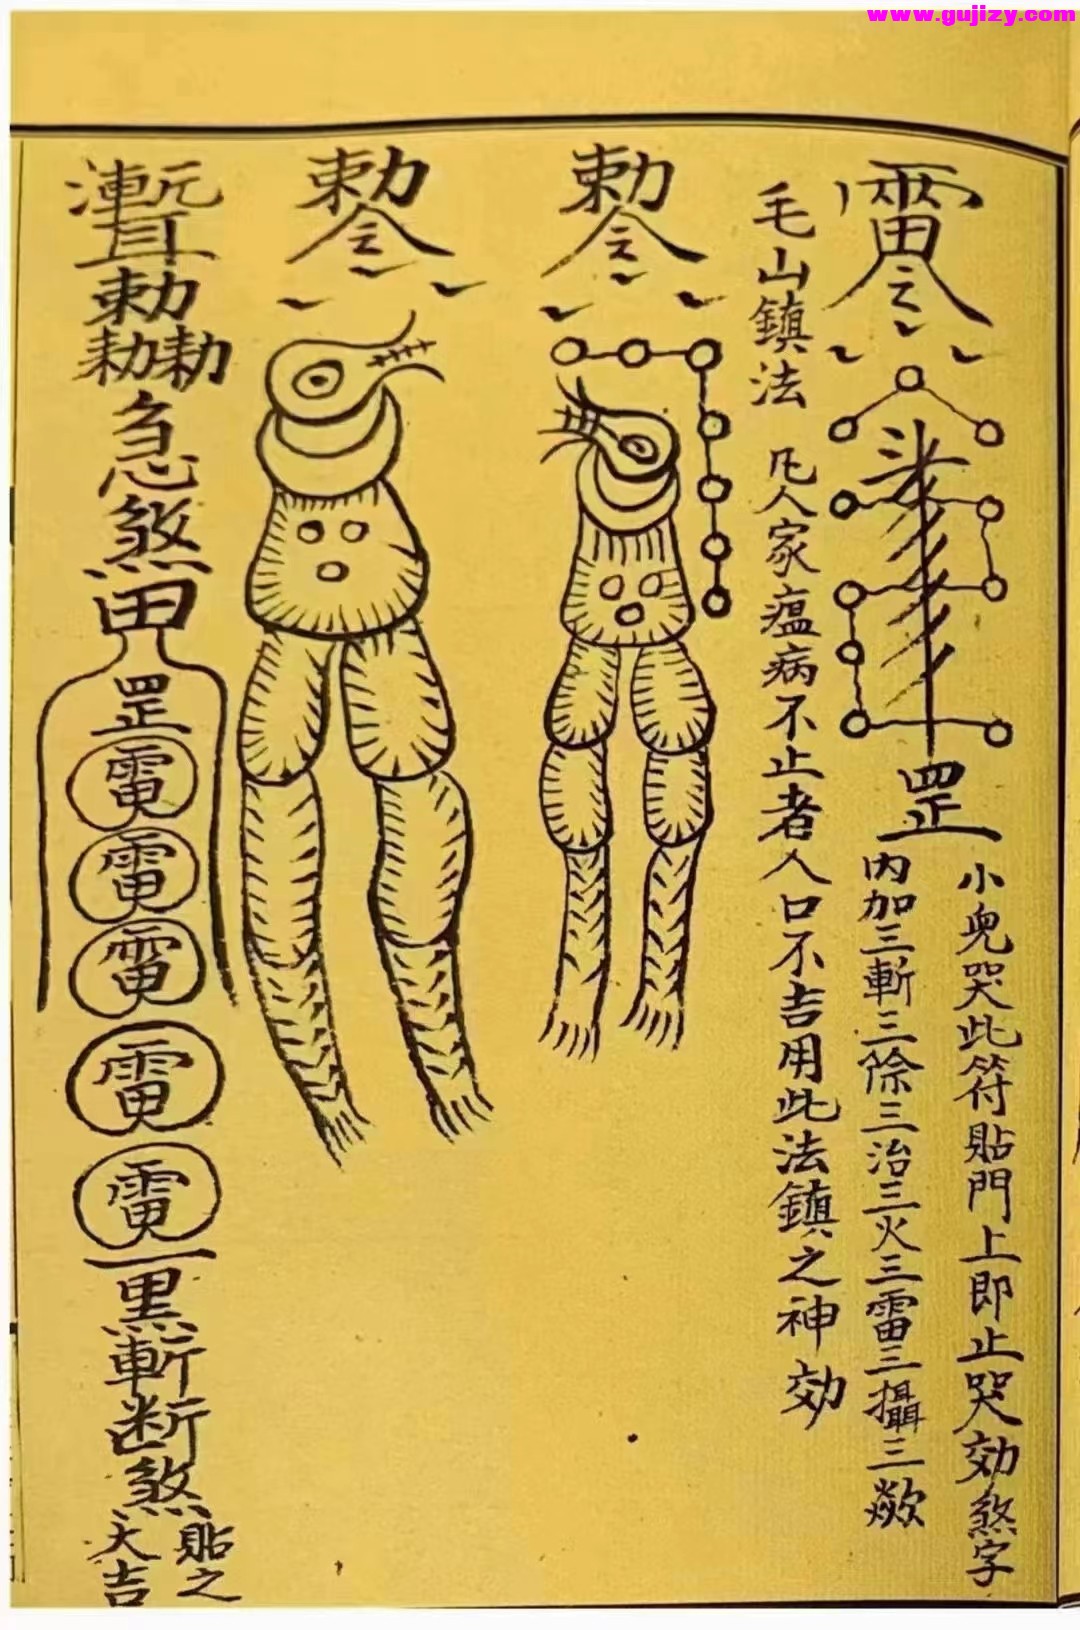 www.gujizy.com
罡
小兒哭此符貼門上即止哭効煞字
內加三斬三除三治三火三雷三攝三歘
毛山鎮法 凡人家瘟病不止者人口不吉用此法鎮之神効
勅令
勅令
勅勅勅
急煞
田
罡
一黑斬断煞
貼之
大吉